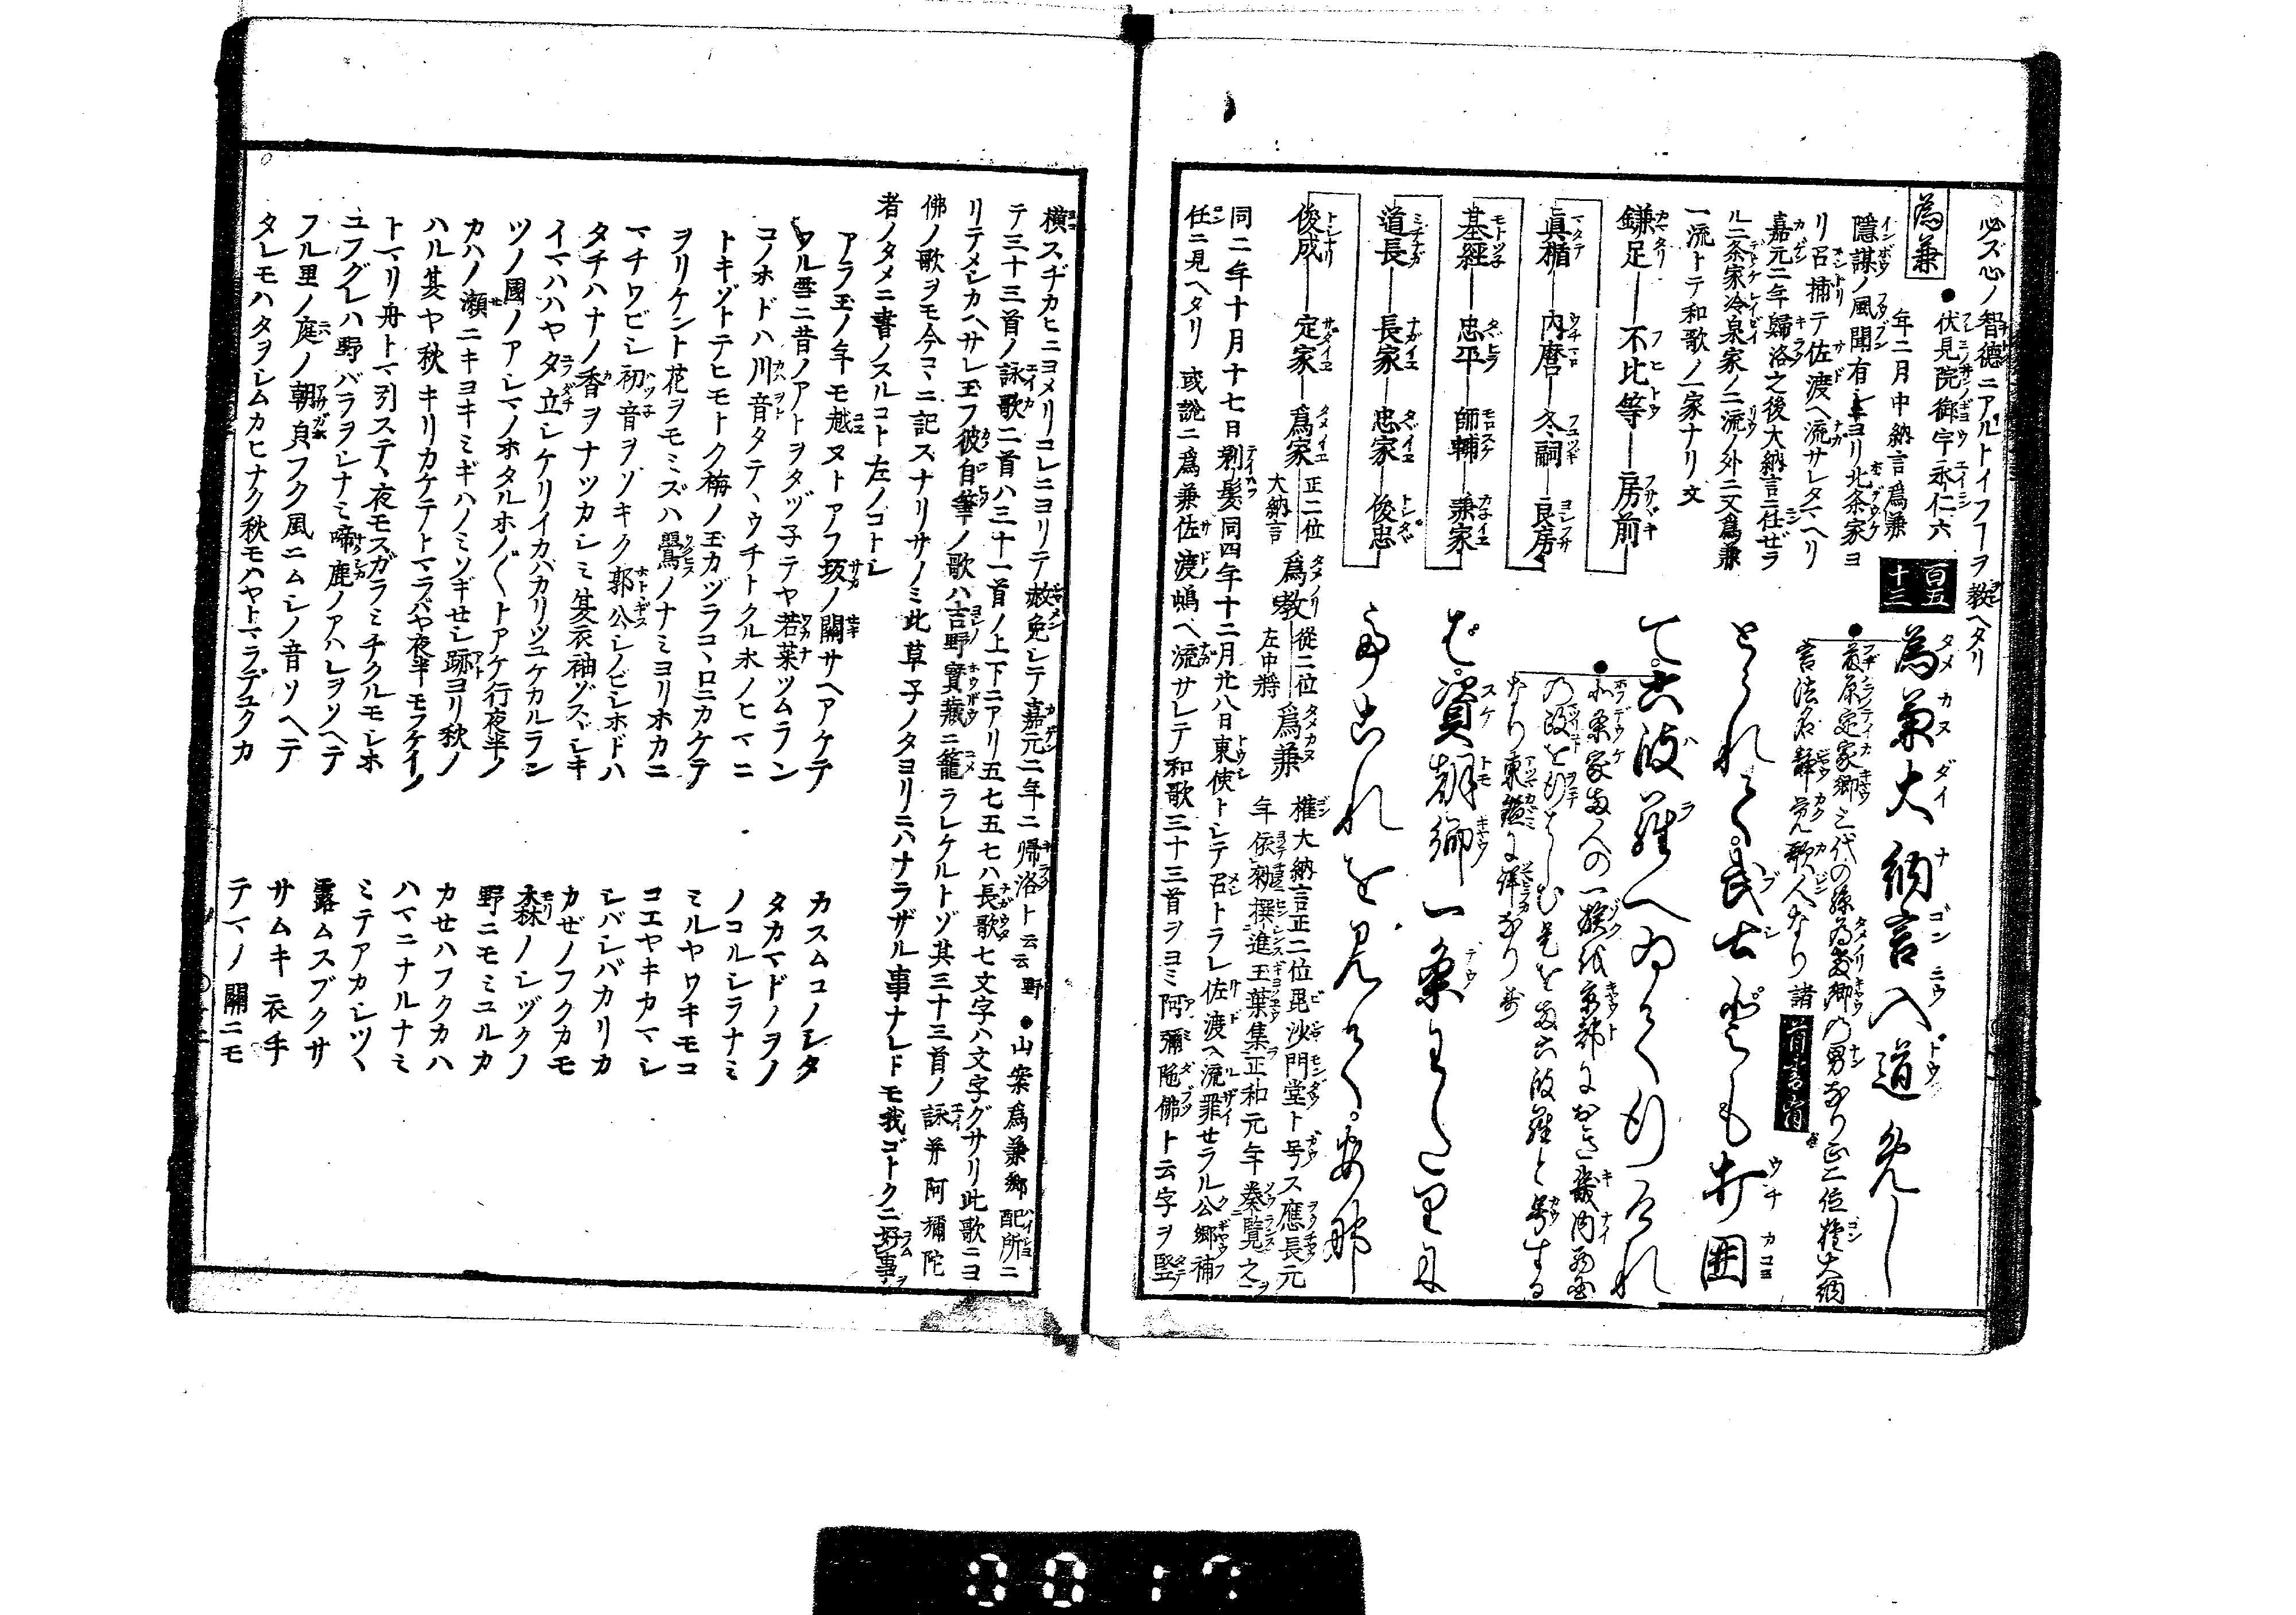 必ズ心ノ智德ニアルトイフヿヲ教ヘタリ
為兼
●伏見院御宇永仁六
年二月中納言爲兼
隱謀ノ風聞有シヨリ北条家ヨ
リ召捕テ佐渡ヘ流サレタマヘリ
嘉元二年歸洛之後大納言ニ任ぜラ
ル二条家冷泉家ノ二流ノ外ニ又爲兼
一流トテ和歌ノ一家ナリ文
鎌足―不比等―房前
眞楯―内麿―冬嗣―良房
基經―忠平―師輔―兼家
道長―長家―忠家―俊忠
俊成―定家―爲家 正二位 大納言
爲敎 從二位 左中將
爲兼 權大納言正二位毘沙門堂ト号ス應長元
年依勅撰進玉葉集正和元年奏覧之
同二年十月十七日剃髪同四年十二月廿八日東使トシテ召トラレ佐渡ヘ流罪せラル公卿補
任ニ見ヘタリ 或說ニ爲兼佐渡嶋ヘ流サレテ和歌三十三首ヲヨミ阿彌陁佛ト云字ヲ竪
百五
十三
為兼大納言入道めし
●藤原定家卿三代の孫為教卿の男なり正二位權大納
言法名静覚歌人なり諸
とられて武士ども打囲
て六波羅へゐて行けれ
●北条家両人の一族を京都におき畿内西国
の政を行はしむ是を両六波羅と号する
なり東鑑に詳なり
ば資朝卿一条わたりに
てこれを見て安那
横スヂカヒニヨメリコレニヨリテ赦免シテ嘉元二年ニ帰洛ト云云野●山案爲兼卿配所ニ
テ三十三首ノ詠歌二首ハ三十一首ノ上下ニアリ五七五七ハ長歌七文字ハ文字グサリ此歌ニヨ
リテメシカヘサレ玉フ彼自筆ノ歌ハ吉野寳藏ニ籠ラレケルトゾ其三十三首ノ詠并阿彌陀
佛ノ歌ヲモ今コヽニ記スナリサノミ此草子ノタヨリニハナラザル事ナレドモ我ゴトクニ好事
者ノタメニ書ノスルコト左ノコトシ
アラ玉ノ年モ越ヌトアフ坂ノ關サヘアケテ カスムコノシタ
フル雪ニ昔ノアトヲタヅ子テヤ若菜ツムラン タカマドノヲノ
コノホドハ川音タテヽウチトクル氷ノヒマニ ノコルシラナミ
トキゾトテヒモトク梅ノ玉カヅラコヽロニカケテ ミルヤワキモコ
ヲリケント花ヲモミズハ鶯ノナミヨリホカニ コエヤキカマシ
マチワビシ初音ヲソキク郭公シノビシホドハ シバシバカリカ
タチハナノ香ヲナツカシミ夏衣袖ヅスヾシキ カぜノフクカモ
イマハハヤタ立シケリイカバカリツユケカルラン 森ノシヅクノ
ツノ國ノアシマノホタルホノ〱トアケ行夜半ノ 野ニモミユルカ
カハノ瀬ニキヨキミギハノミソギせシ跡ヨリ秋ノ カせハフクカハ
ハル夏ヤ秋キリカケテトマラバヤ夜半モフケイノ ハマニナルナミ
トマリ舟トマ引ステヽ夜モスガラミチクルモシホ ミテアカシツヽ
ユフグレハ野バラヲシナミ啼鹿ノアハレヲソヘテ 露ムスブクサ
フル里ノ庭ノ朝皃フク風ニムシノ音ソヘテ サムキ衣手
タレモハタヲシムカヒナク秋モハヤトマラデユクカ テマノ關ニモ
0017